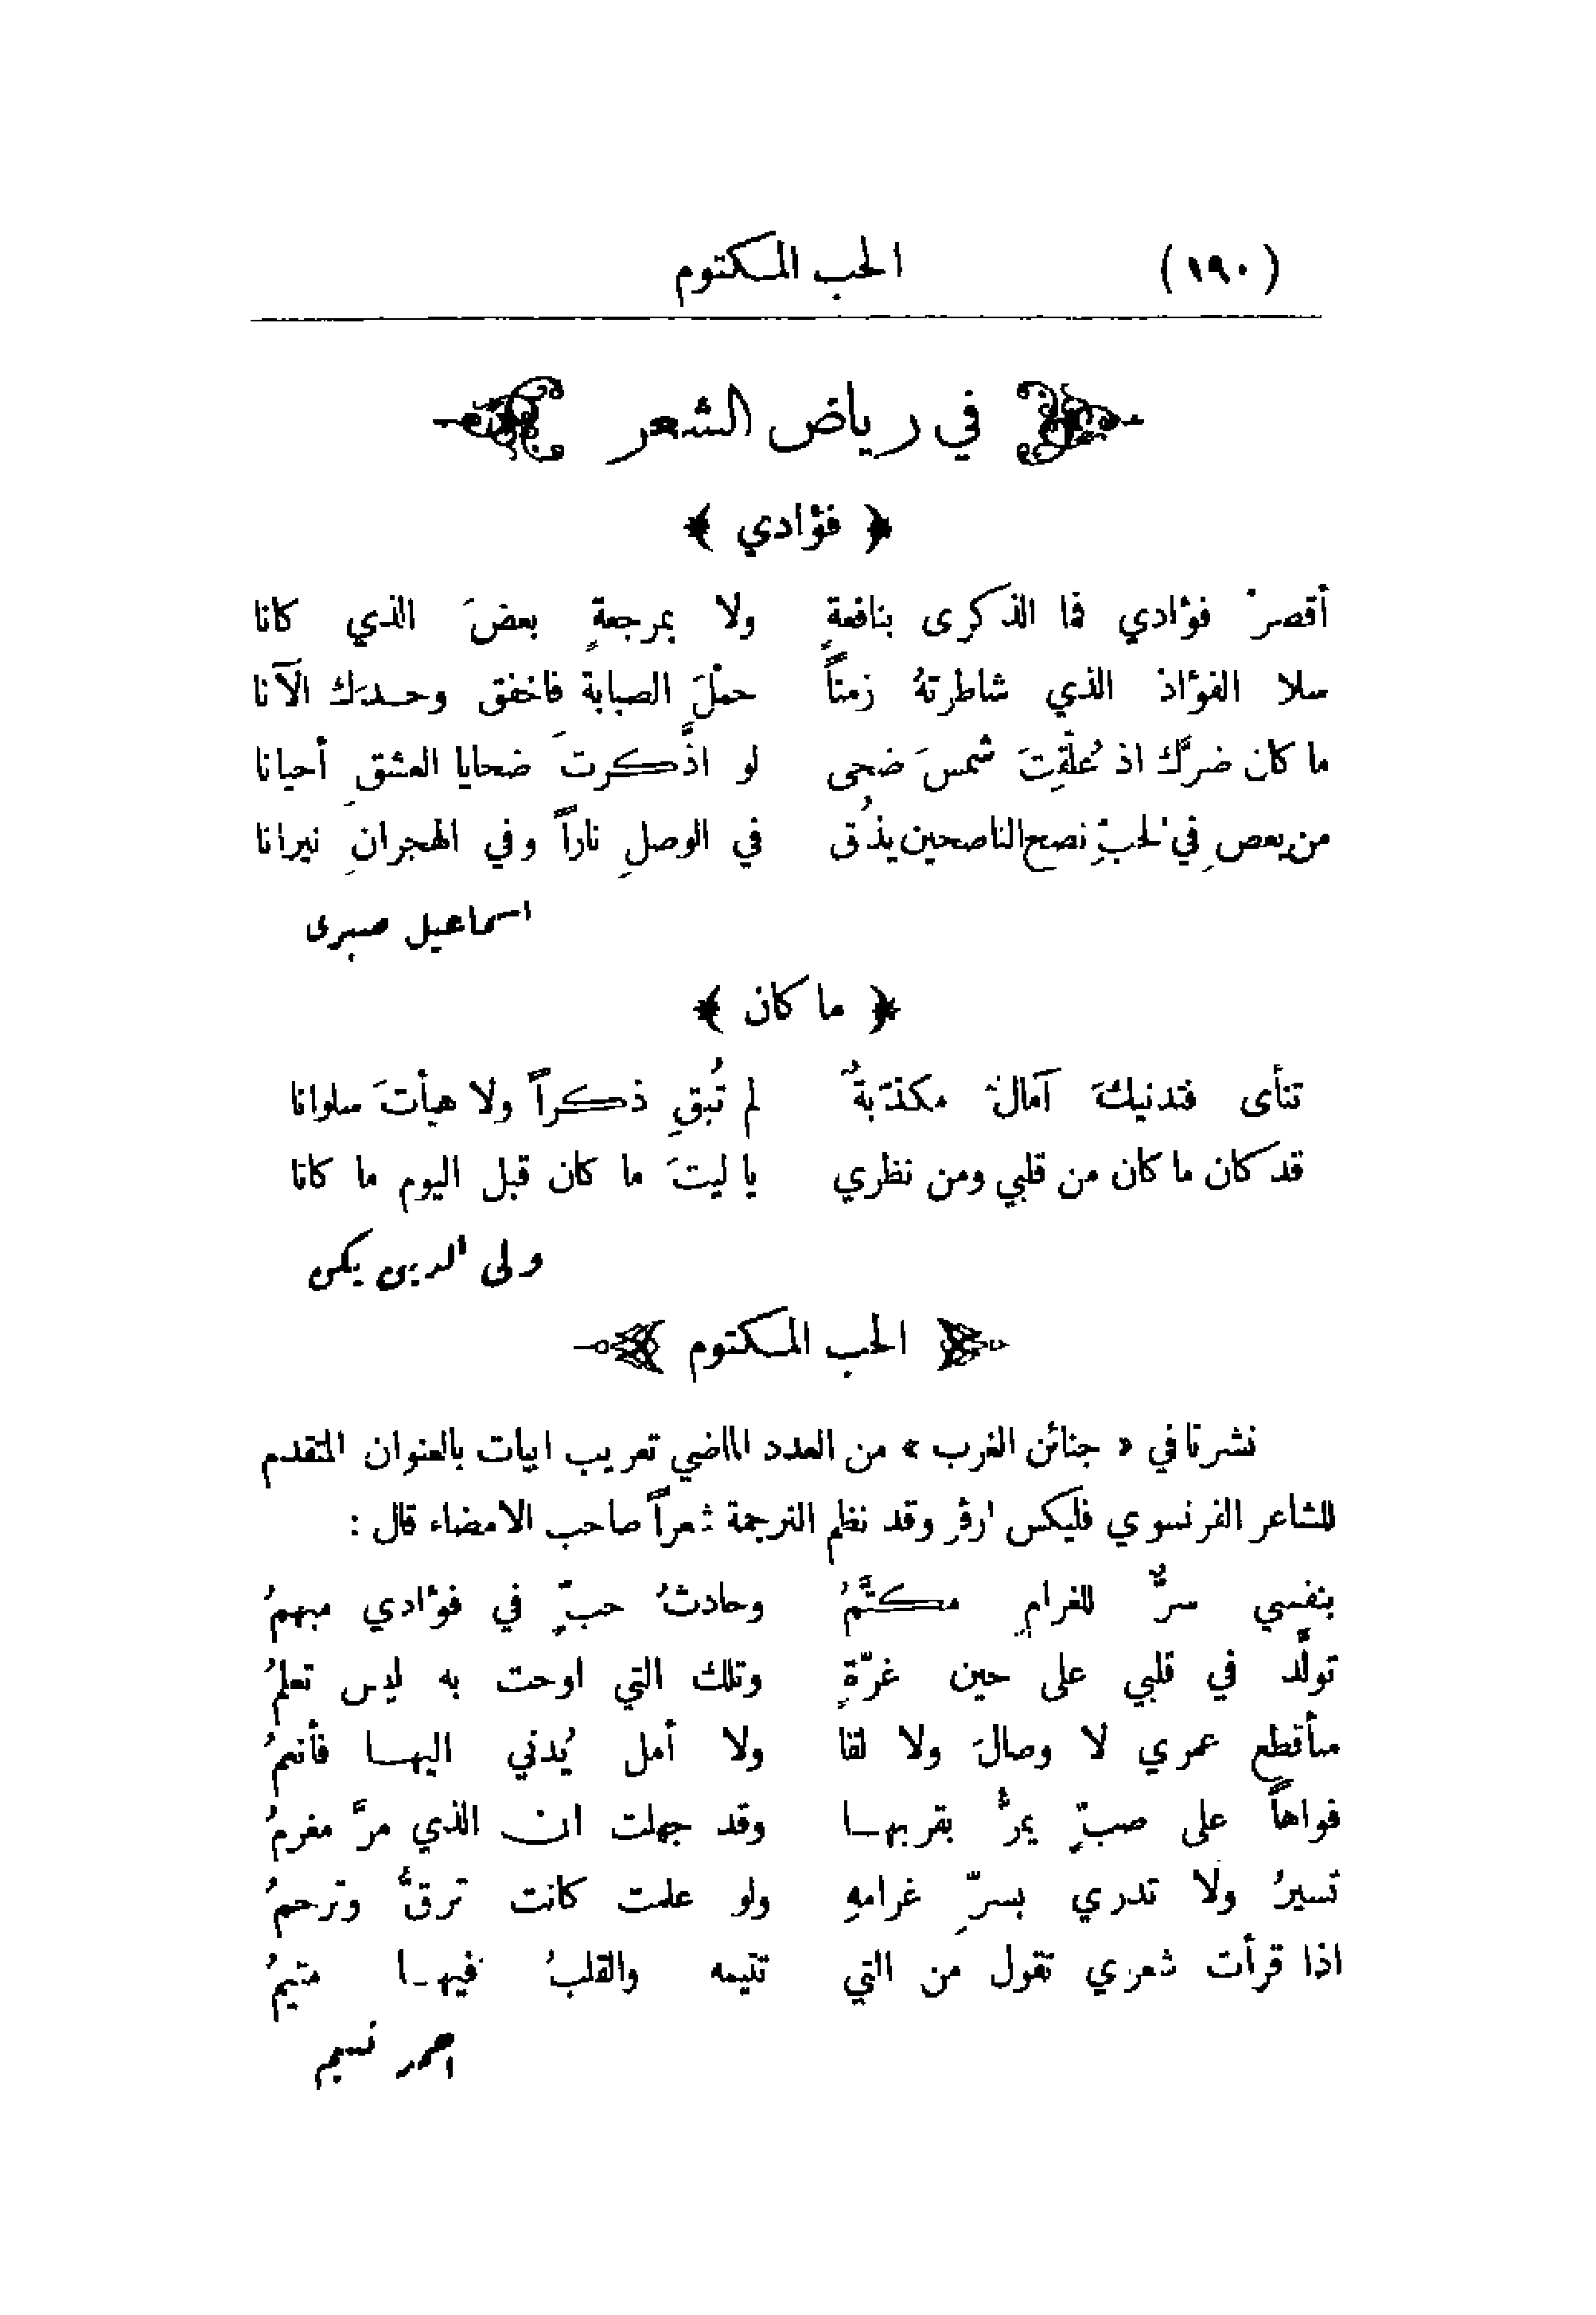 (١٩٠) الحب المكتوم
في رياض الشعر
﴿ فؤادي ﴾
أقصرْ فؤادي فما الذكرى بنافعةٍ ولا بمرجعةٍ بعضَ الذي كانا
سلا الفؤادُ الذي شاطرتهُ زمناً حملَ الصبابة فاخفق وحدَك الآنا
ما كان ضرَّك اذ عُلّقتَ شمسَ ضحى لو اذَّكرتَ ضحايا العشقِ أحيانا
من يعصِ في الحبّ نصح الناصحين يذُق في الوصلِ ناراً وفي الهجرانِ نيرانا
اسماعيل صبرى
﴿ ما كان ﴾
تنأى فتدنيكَ آمالٌ مكذّبةٌ لم تُبقِ ذكراً ولا هيأتَ سلوانا
قد كان ما كان من قلبي ومن نظري يا ليتَ ما كان قبل اليوم ما كانا
ولى الدين يكن
الحب المكتوم
نشرنا في « جنائن الغرب » من العدد الماضي تعريب ابيات بالعنوان المتقدم
للشاعر الفرنسوي فليكس ارڤر وقد نظم الترجمة شعراً صاحب الامضاء قال :
بنفسي سرٌّ للغرامِ مكتَّمُ وحادثُ حبّ في فؤادي مبهمُ
تولَّد في قلبي على حين غرّةٍ وتلك التي اوحت به ليس تعلمُ
سأقطع عمري لا وصالَ ولا لقا ولا أمل يُدني اليها فأنعمُ
فواهاً على صبّ يمرُّ بقربها وقد جهلت ان الذي مرَّ مغرمُ
تسيرُ ولا تدري بسرّ غرامهِ ولو علمت كانت ترقُّ وترحمُ
اذا قرأت شعري تقول من التي تتيمه والقلبُ فيها متيمُ
احمد نسيم